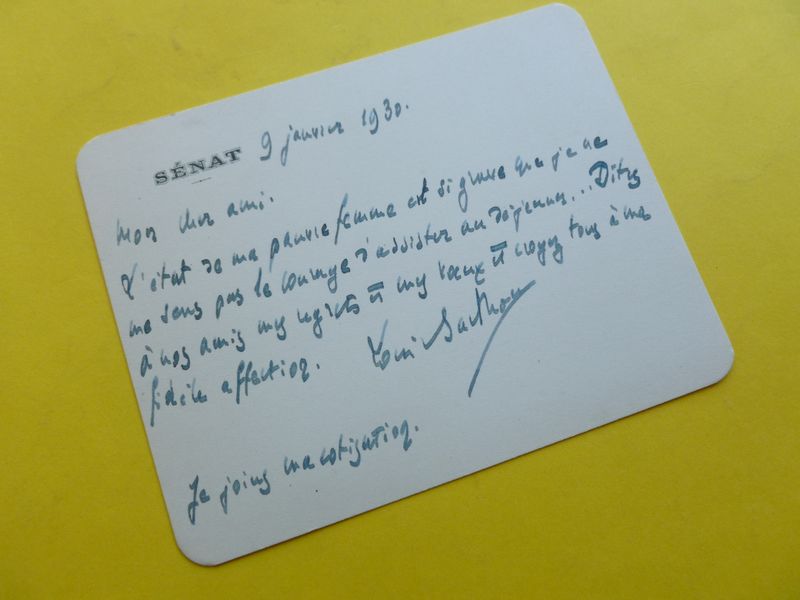 SÉNAT 9 janvier 1930.
Mon cher ami.
L'état de ma pauvre femme est si grave que je ne
me sens pas le courage d'assister au déjeuner... Dites
à nos amis mes regrets et mes vœux et croyez tous à ma
fidèle affection. Louis Barthou
Je joins ma cotisation.